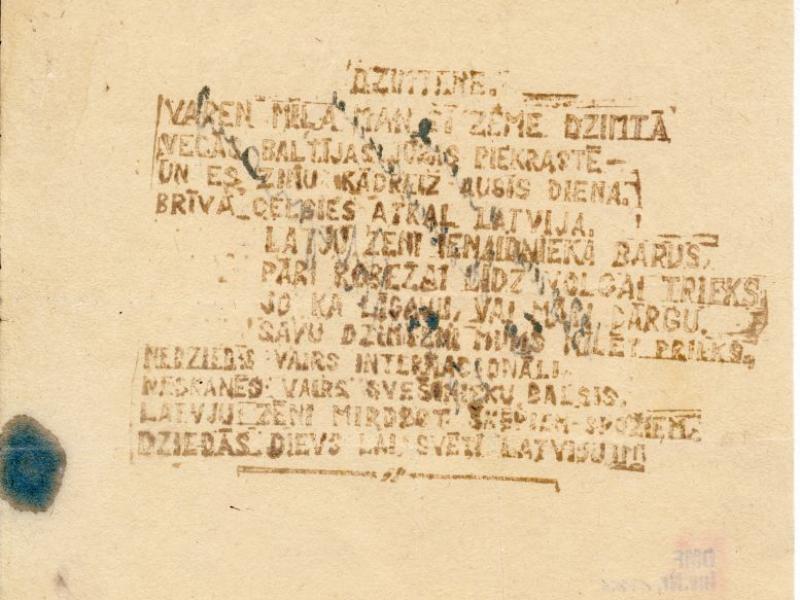 DZIMTENE.
VAREN MĪĻA MAN ŠĪ ZEME DZIMTĀ
VECĀS BALTIJAS JŪRAS PIEKRASTĒ—
UN ES ZINU KĀDREIZ AUSĪS DIENA.
BRĪVĀ CELSIES ATKAL LATVIJA.
LATVJU ZĒNI IENAIDNIEKA BARUS.
PĀRI ROBEŽAI LĪDZ VOLGAI TRIEKS
JO KĀ LĪGAVU, VAI MĀTI DĀRGU.
SAVU DZIMTENI MUMS MĪLĒT PRIEKS.
NEDZIEDĀS VAIRS INTERNACIONĀLI.
NESKANĒS VAIRS SVEŠINIEKU BALSIS.
LATVJU ZĒNI MIRDZOT ŠĶĒPIEM SPOŽIEM.
DZIEDĀS DIEVS LAI SVĒTĪ LATVIJU!!!